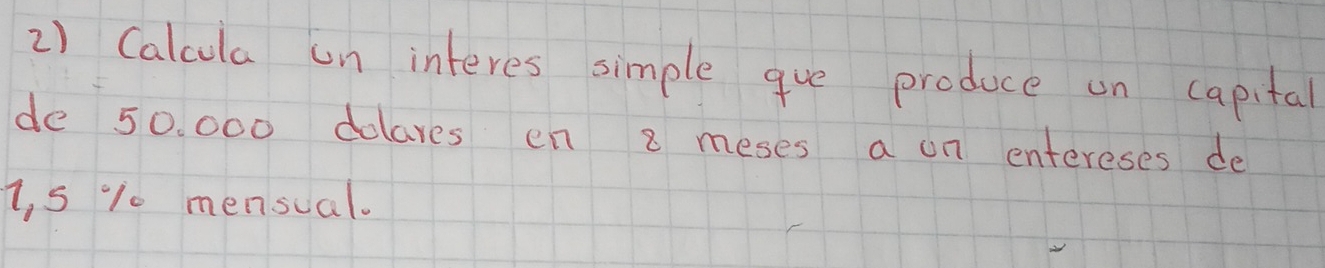 2) Calcula un interes simple que produce un capital
de 50.000 dolares en 8 meses a un entereses de
1,5 % mensual.